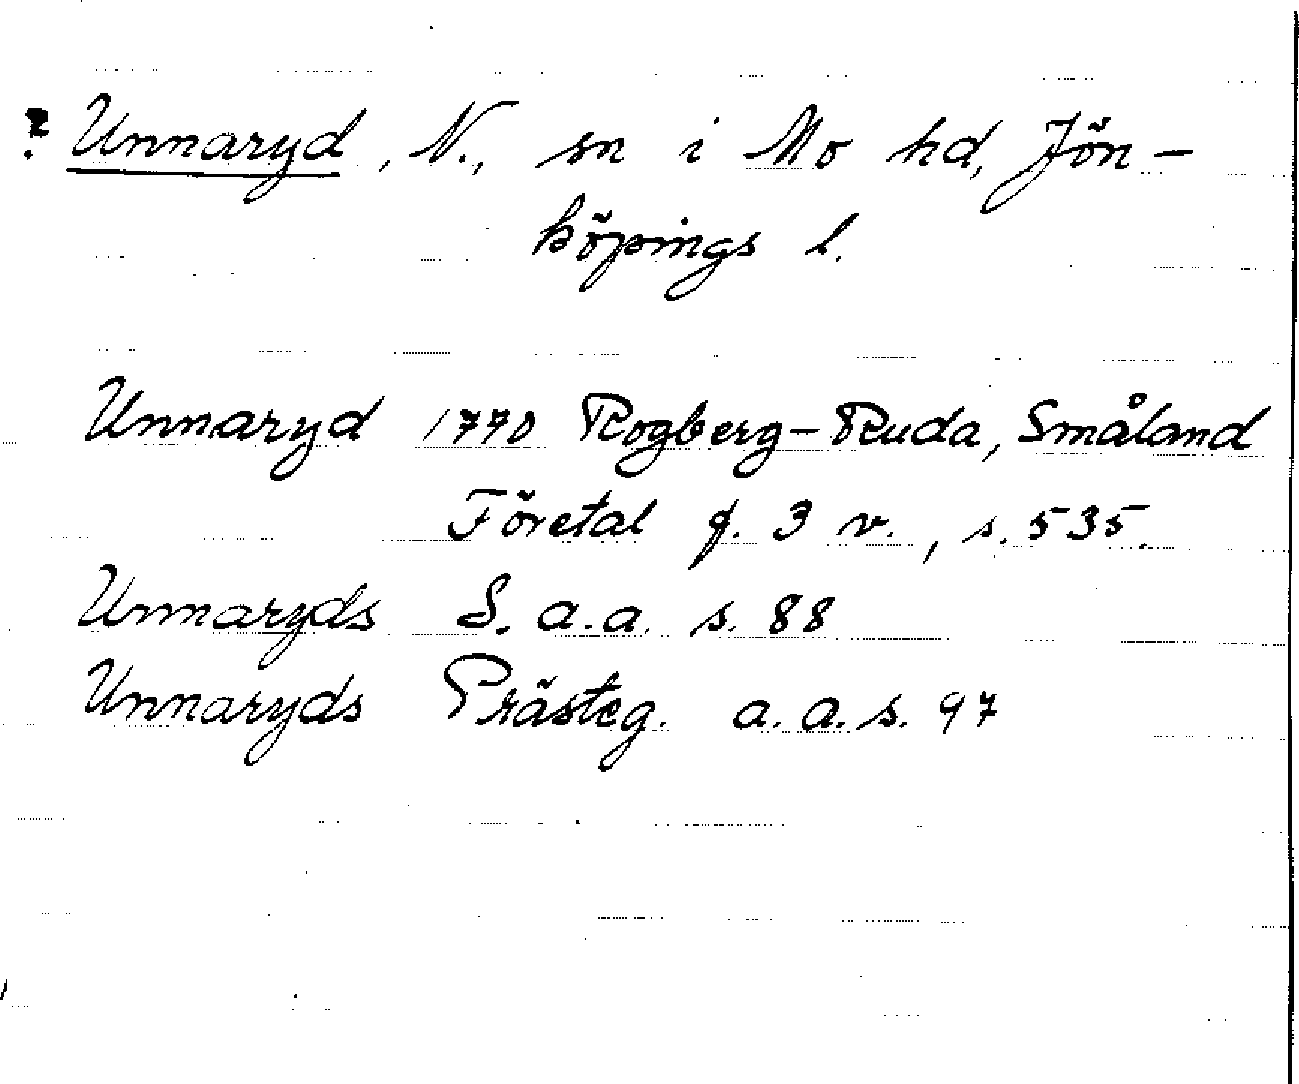 ? Unnaryd, N., sn i Mo hd, Jön-
köpings l.
Unnaryd 1770 Rogberg-Ruda, Småland
Företal f. 3 v., s. 535.
Unnaryds S. a.a. s. 88
Unnaryds Prästeg. a.a. s. 97